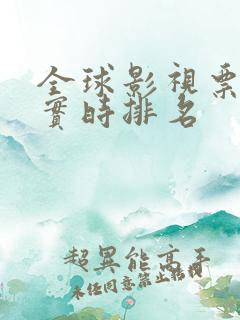 全球影視票
實時排名
超異能高手
未任同意禁止轉載